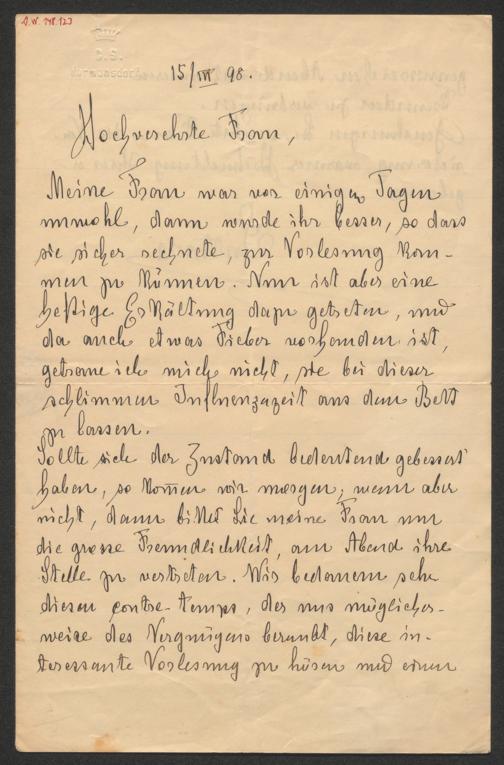 A.W. 148.123
15/III 98.
Hochverehrte Frau,
Meine Frau war vor einigen Tagen
unwohl, dann wurde ihr besser, so dass
sie sicher rechnete, zur Vorlesung kom-
men zu können. Nun ist aber eine
heftige Erkältung dazu getreten, und
da auch etwas Fieber vorhanden ist,
getraue ich mich nicht, sie bei dieser
schlimmen Influenzazeit aus dem Bett
zu lassen.
Sollte sich der Zustand bedeutend gebessert
haben, so kom̅en wir morgen; wenn aber
nicht, dann bittet Sie meine Frau um
die grosse Freundlichkeit, am Abend ihre
Stelle zu vertreten. Wir bedauern sehr
diesen contre-temps, der uns möglicher-
weise des Vergnügens beraubt, diese in-
teressante Vorlesung zu hören und einen